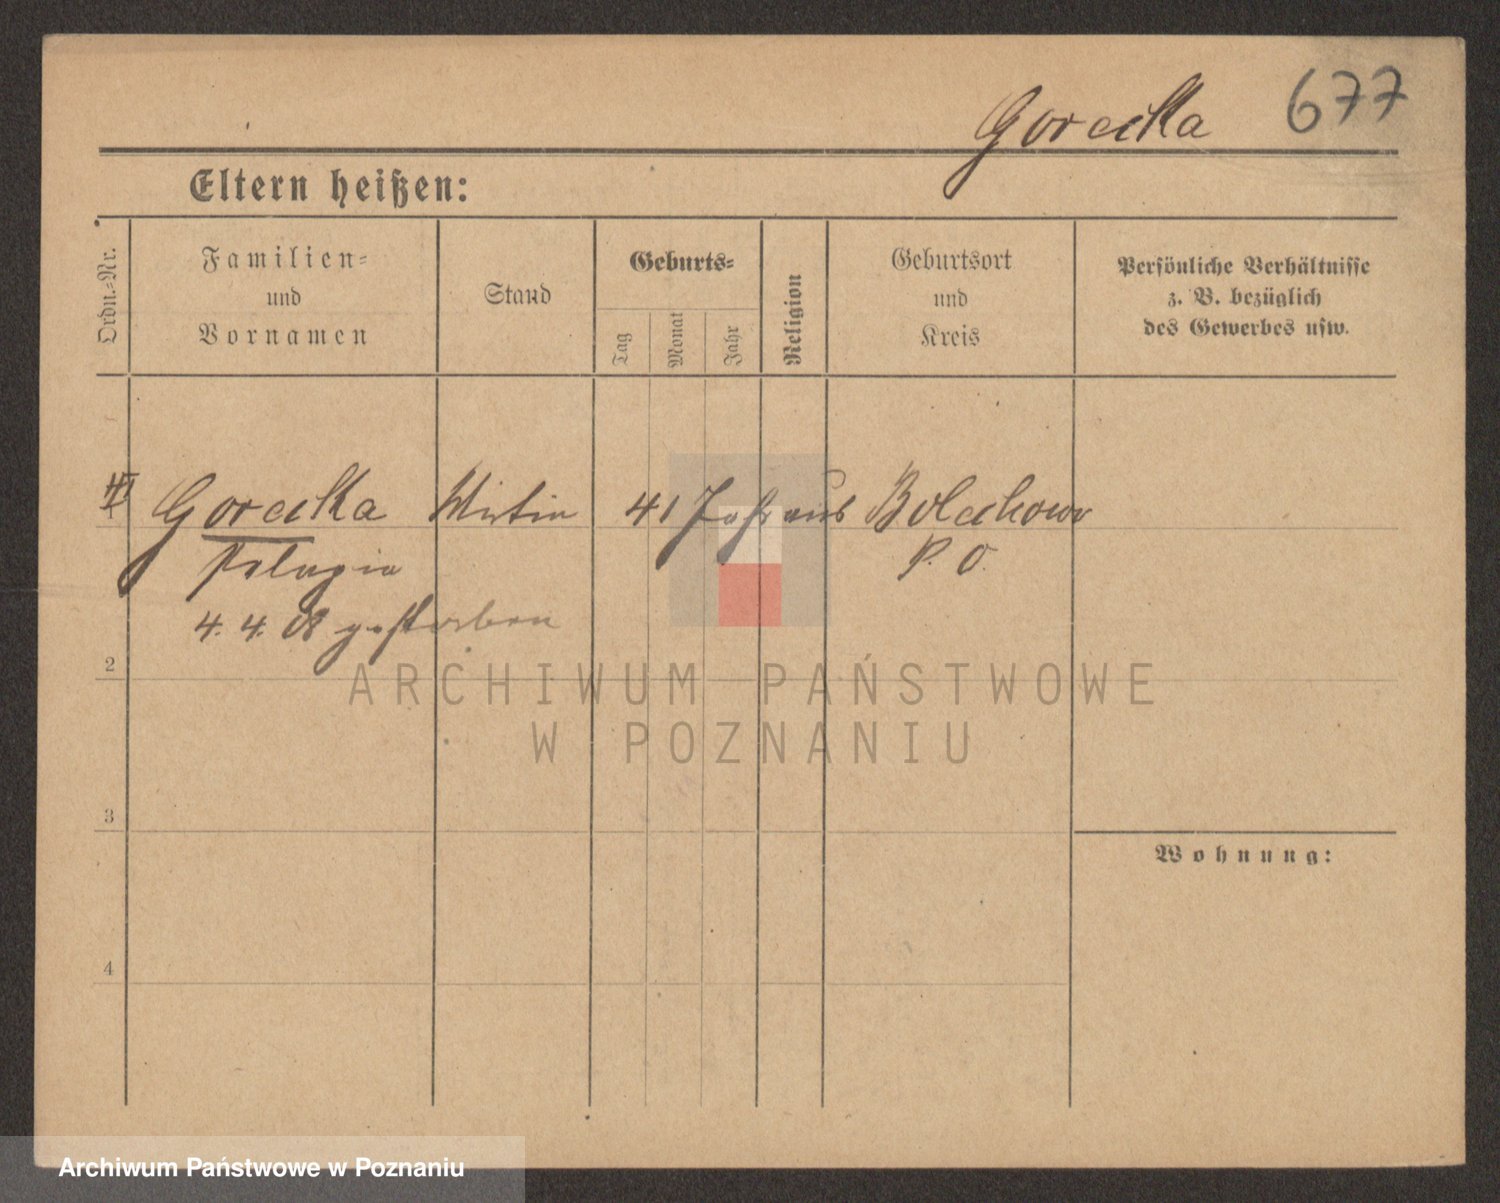 Gorecka 677
Eltern heißen:
Ordn.-Nr.
Familien-
und
Vornamen
Stand
Geburts-
Tag
Monat
Jahr
Religion
Geburtsort
und
Kreis
Persönliche Verhältnisse
z. B. bezüglich
des Gewerbes usw.
1 Gorecka Wirtin 41 Jahr aus Bolechowo
Pelagia P. O.
4. 4. 08 gestorben
2
ARCHIWUM PAŃSTWOWE
W POZNANIU
3
Wohnung:
4
Archiwum Państwowe w Poznaniu